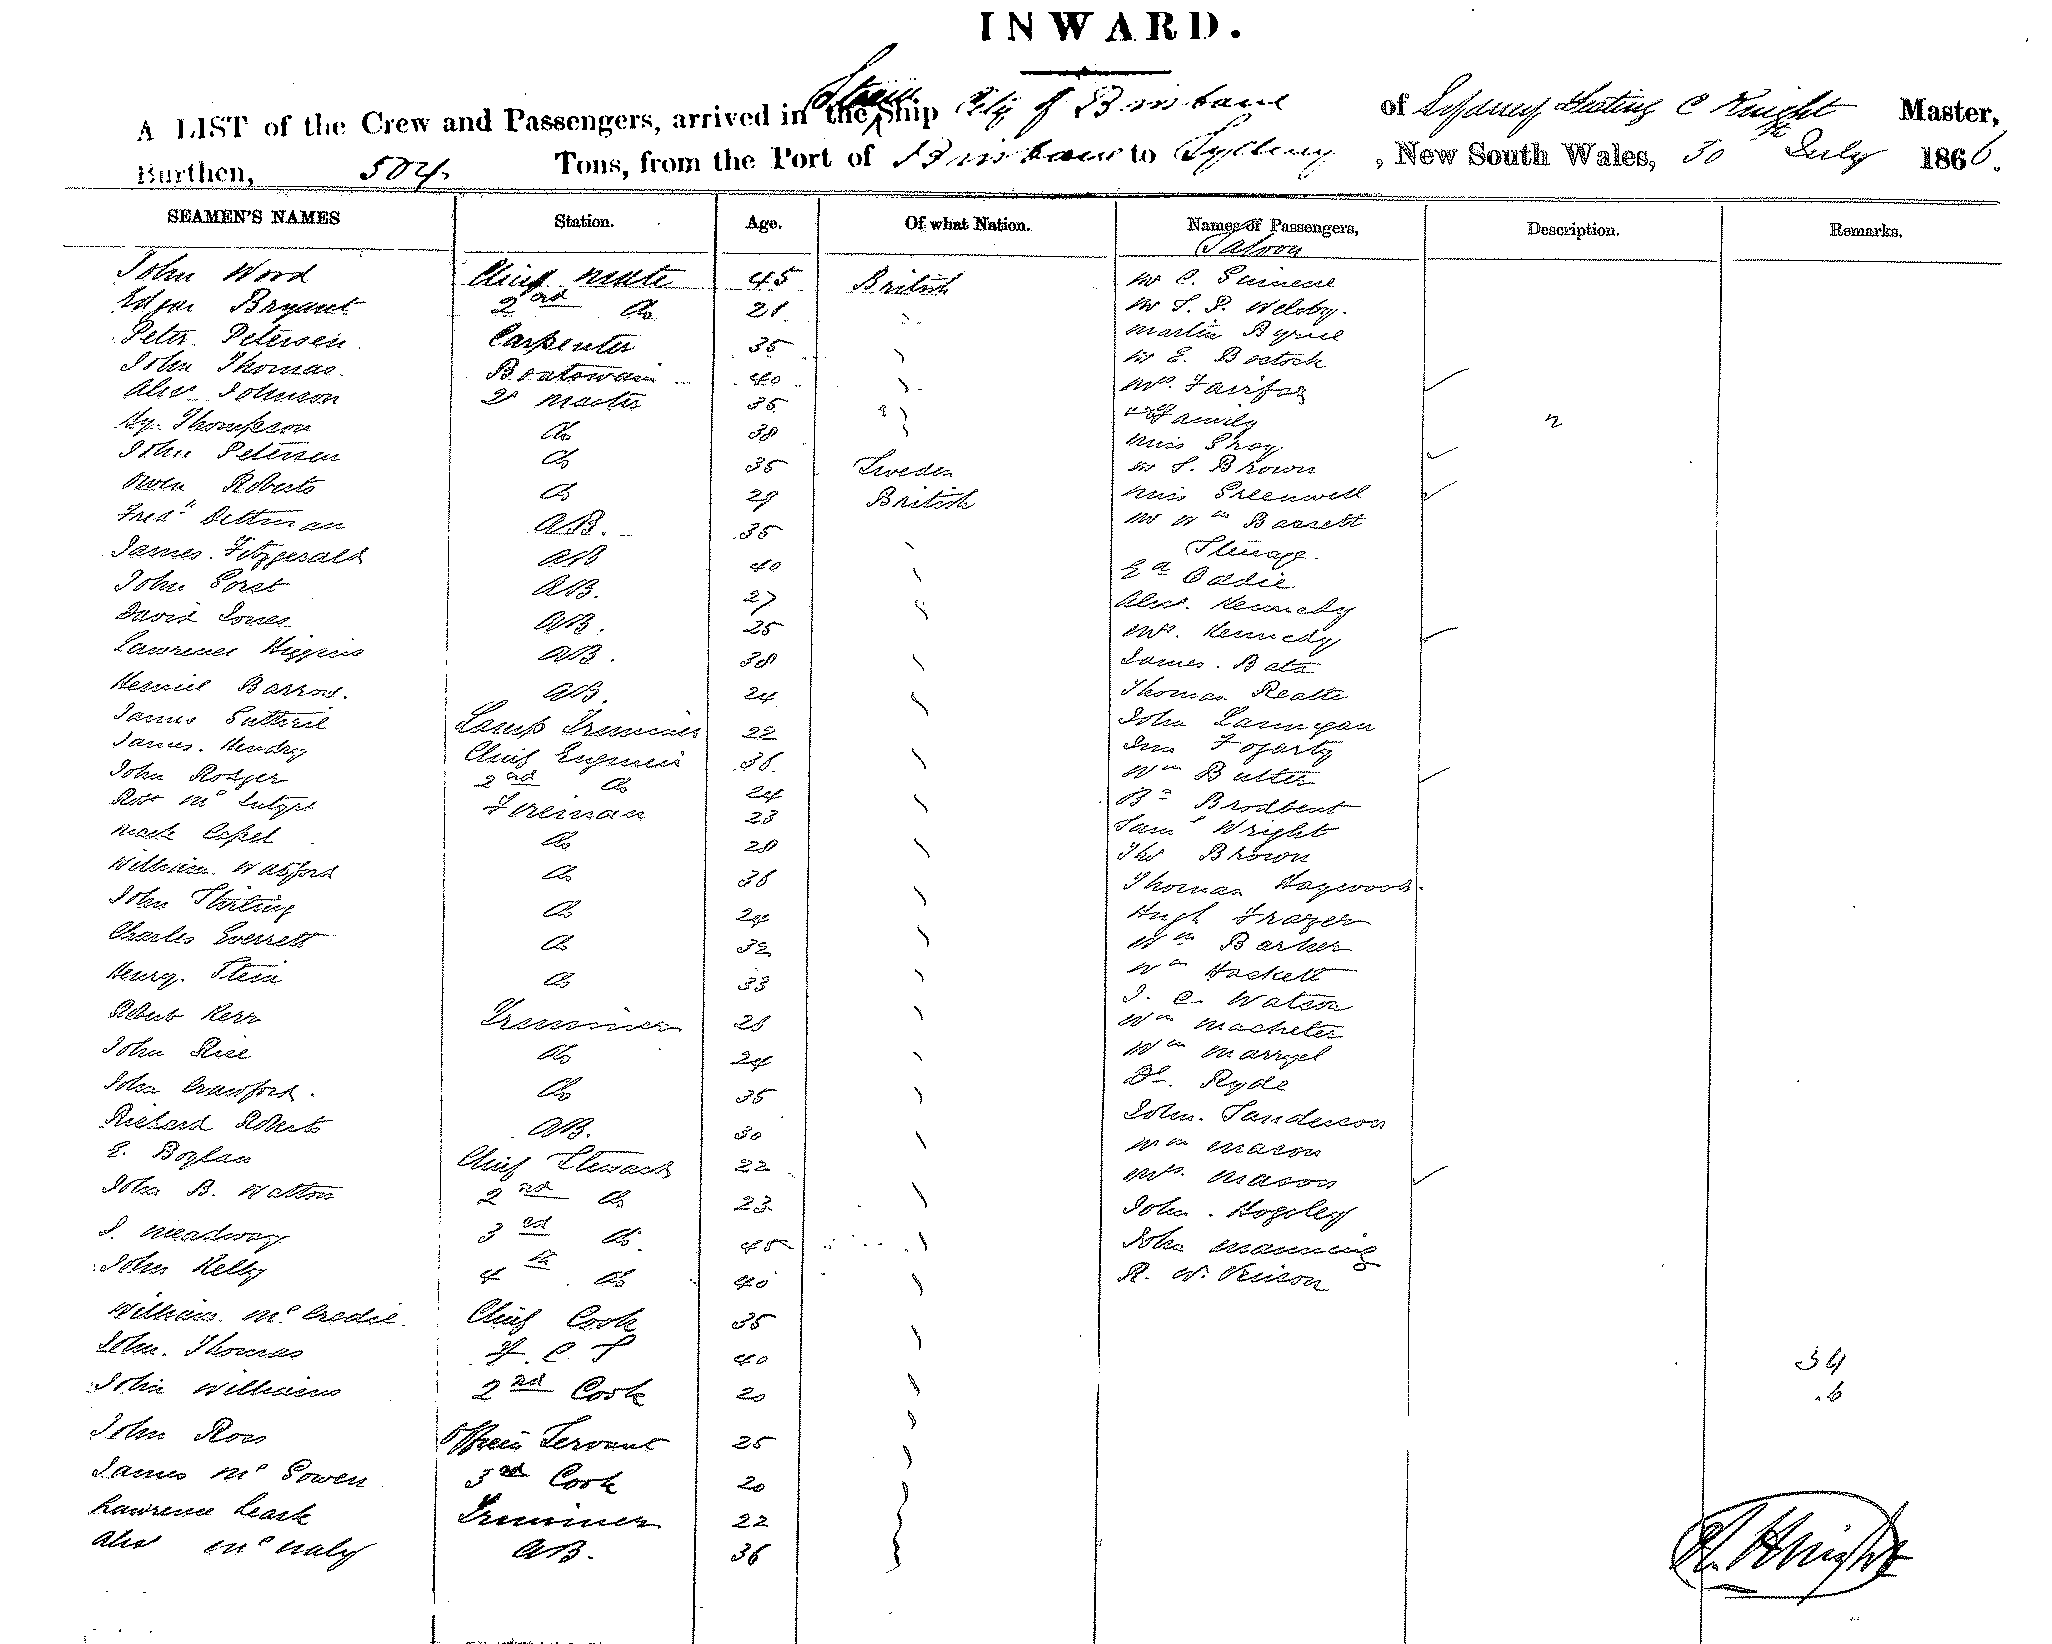 INWARD.
A LIST of the Crew and Passengers, arrived in the Steam Ship City of Brisbane of Sydney Knight Master,
Burthen, 504 Tons, from the Port of Brisbane to Sydney, New South Wales, 30 July 1866.
SEAMEN'S NAMES Station. Age. Of what Nation. Names of Passengers, Description. Remarks.
Saloon
John Wood Chief Mate 45 British Mr C.
Bryant 2nd Do 21 Mr Welsby.
Peter Petersen Carpenter 35 Martin Byrne
John Thomas Boatswain 40 Mr E. Bostock
Alexr Johnson 2r Master 35 Mrs. Fairfax
Hy. Thompson Do 38 Family 2
John Petersen Do 35 Sweden Miss
Owen Roberts Do 29 British Mr Brown
Fredk Dettman AB. 35 Miss Greenwell
James Fitzgerald AB 40 Mr Wm Barrett
John AB. 27 Steerage
David Jones AB. 25 Ed Oddie
Lawrence Higgins AB. 38 Alexr. Kennedy
Barron. AB. 24 Mrs. Kennedy
James Guthrie Lamp Trimmer 22 James Bate
James Hendry Chief Engineer 36 Thomas
John Rodger 2nd Do 24 John Lannigan
Robt McIntyre Fireman 23 Fogarty
Mark Capel Do 28 Wm Butler
William Watford Do 36 Brodbent
John Stirling Do 24 Saml Wright
Charles Everrett Do 32 Thos Brown
Henry Stein Do 33 Thomas Haywood
Robert Kerr Trimmer 28 Hugh Frazer
John Rice Do 24 Wm Barker
John Crawford. Do 35 Wm Haskett
Richard Roberts AB. 30 J. C. Watson
E. Boylan Chief Steward 22 Wm Macheter
John B. Watton 2nd Do 23 Wm
J. Meadway 3rd Do 45 Dl. Ryde
John Kelly 4th Do 40 John. Sanderson
William McCredie Chief Cook 35 Wm Mason
John Thomas F. C. S 40 Mrs. Mason
John Williams 2nd Cook 20 John Hogsley
John Ross Officers Servant 25 John Manning
James McGowen 3rd Cook 20 R. W. Vinson
Lawrence Leask Trimmer 22 34
Alexr McNaly AB. 36 6
Knight